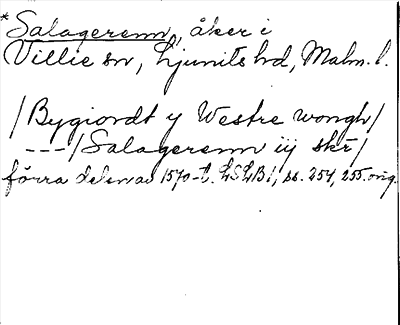 *Salagerenn, åker i
Villie sn, Ljunits hd, Malm. l.
/Bygiordt y Westre wongh/
---/Salagerenn iij skr/
förra delen av 1570-t. LSLB1, ss. 254, 255. orig.